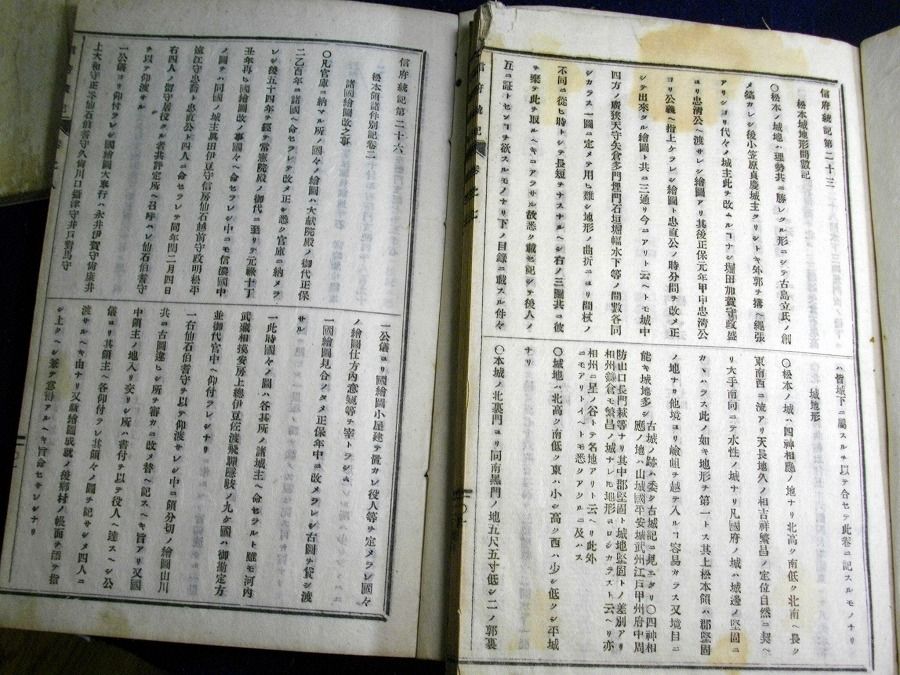 信府統記第二十三
松本城地形間數記
〇松本ノ城地ハ理勢共ニ勝レタル形ニシテ古島立氏ノ創
メ縄カレシ後小笠原貞慶城主タリシトキ外郭チ搆ヘ繩張
アリショリ代々ノ城主此チ改ムルコナシ堀田加賀守政盛
ヨリ忠清公ヘ渡サレシ繪圖アリ其後正保元年甲申忠清公
ヨリ公義ヘ指上ケラレシ繪圖ト忠直公ノ時分間チ改メ正
シテ出來タル繪圖ト共ニ三通リ今ニアリト云ヘトモ城中
四方ノ廣狹天守矢倉多門埋門石垣塘幅水下等ノ間數各同
シカラス一圖ニ定メテ用ヒ難シ地形ノ曲折ニヨリ間杖ノ
不同ニ從ヒ時トシテ長短チナスナルヘシ右ノ三圖其ニ彼
チ棄テ此チ取ルヘキコアラサル故悉ク載セ記シテ後人ノ
互ニ証トセンコチ欲スルモノナリ下ノ目録ニ載スル件々
ハ皆城下ニ屬スルチ以テ合セテ此卷ニ記スルモノナリ
城地形
〇松本ノ城ハ四神相應ノ地ナリ北高ク南低ク北南ヘ長ク
東南西ニ流アリ天長地久ノ相吉祥繁昌ノ定位自然ニ契ヘ
リ大手南向ニテ水性ノ城ナリ凡國府ノ城ハ城邊ノ堅固ニ
カヽハラス此ノ如キ地形チ第一トス其上松本領ハ郡堅固
ノ地ナリ他境ヨリ嶮岨チ越テ入ルコ容易カラス又境目ニ
能キ城地多シ
古城ノ跡ハ委ク古城記ニ見エタリ〇四神相
應ノ地ハ山城國平安城武州江戸甲州府中周
防山口長門萩等ナリ其中郡堅固ト城地堅固トノ差別アリ
相州鎌倉モ繁昌ノ城ナレモ地形ハヨロシカラスト云ヘリ亦
相州ニ星ノ谷トテ名地アリト云ヘリ此外
ニモアリトイヘトモ悉クアクルニ及ハス
〇城地ハ北高ク南低ク東ハ小シ高ク西ハ少シ低ク平城
ナリ
〇本城ノ北裏門ヨリ同南黒門ノ地五尺五寸低シ二ノ郭裏
信府統記第二十六
松本領諸件別記卷二
諸國繪圖改之事
〇凡官庫ニ納マル所ノ國々ノ繪圖ハ大猷院殿ノ御代正保
二乙酉年ニ諸國ヘ命セラレテ改メ正シ悉ク官庫ニ納メラ
レシ後五十四年チ經テ常憲院殿ノ御代ニ至リテ元祿十丁
丑年再ヒ國繪圖改ノ事國々ヘ命セラレシ中ニモ信濃國中
ノ圖チハ同國ノ城主眞田伊豆守信房仙石越前守政明松平
遠江守忠喬ト忠直公ト四人ニ命セラレテ同年閏二月四日
右四人ノ御留守居役タル者共評定所ヘ召呼ハレ仙石伯耆守
チ以テ仰渡サル
一公儀ヨリ仰付ラレシ國繪圖大奉行ハ永井伊賀守甯庸井
上大和守正岑仙石伯耆守久尚川口攝津守井戸對馬守
一公儀ヨリ國繪圖小屋建テ置カレ役人等チ定メラレ國々
ノ繪圖仕方內意窺等チ宰トラシム
一國繪圖見合ノタメ正保年中ニ改メラレシ古圖チ貸シ渡
サル
一此時國々ノ圖ハ各其所ノ諸城主ヘ命セラルト雖モ河內
武藏相摸安房上總伊豆佐渡飛驒隱岐ノ九ケ國ハ御勘定方
並御代官中ヘ仰付ラレシナリ
一右仙石伯耆守チ以テ仰渡サレシ中ニ領分切ノ繪圖山川
共ニ古圖違ヒシ所チ審カニ改メ替ヘ記スヘキ旨アリ又國
中領主ノ地入リ交リシ所ハ書付チ以テ役人ヘ達スヘシ公
儀ヨリ其領主ヘ各仰付ラレ其領々ノ圖チ記サシメ四人ニ
渡サルヘキ由ナリ又新繪圖成就ノ後鄕村ノ帳面チ語チ指
シ上ヘシ兼テ意得アルヘキ旨命セラレシナリ